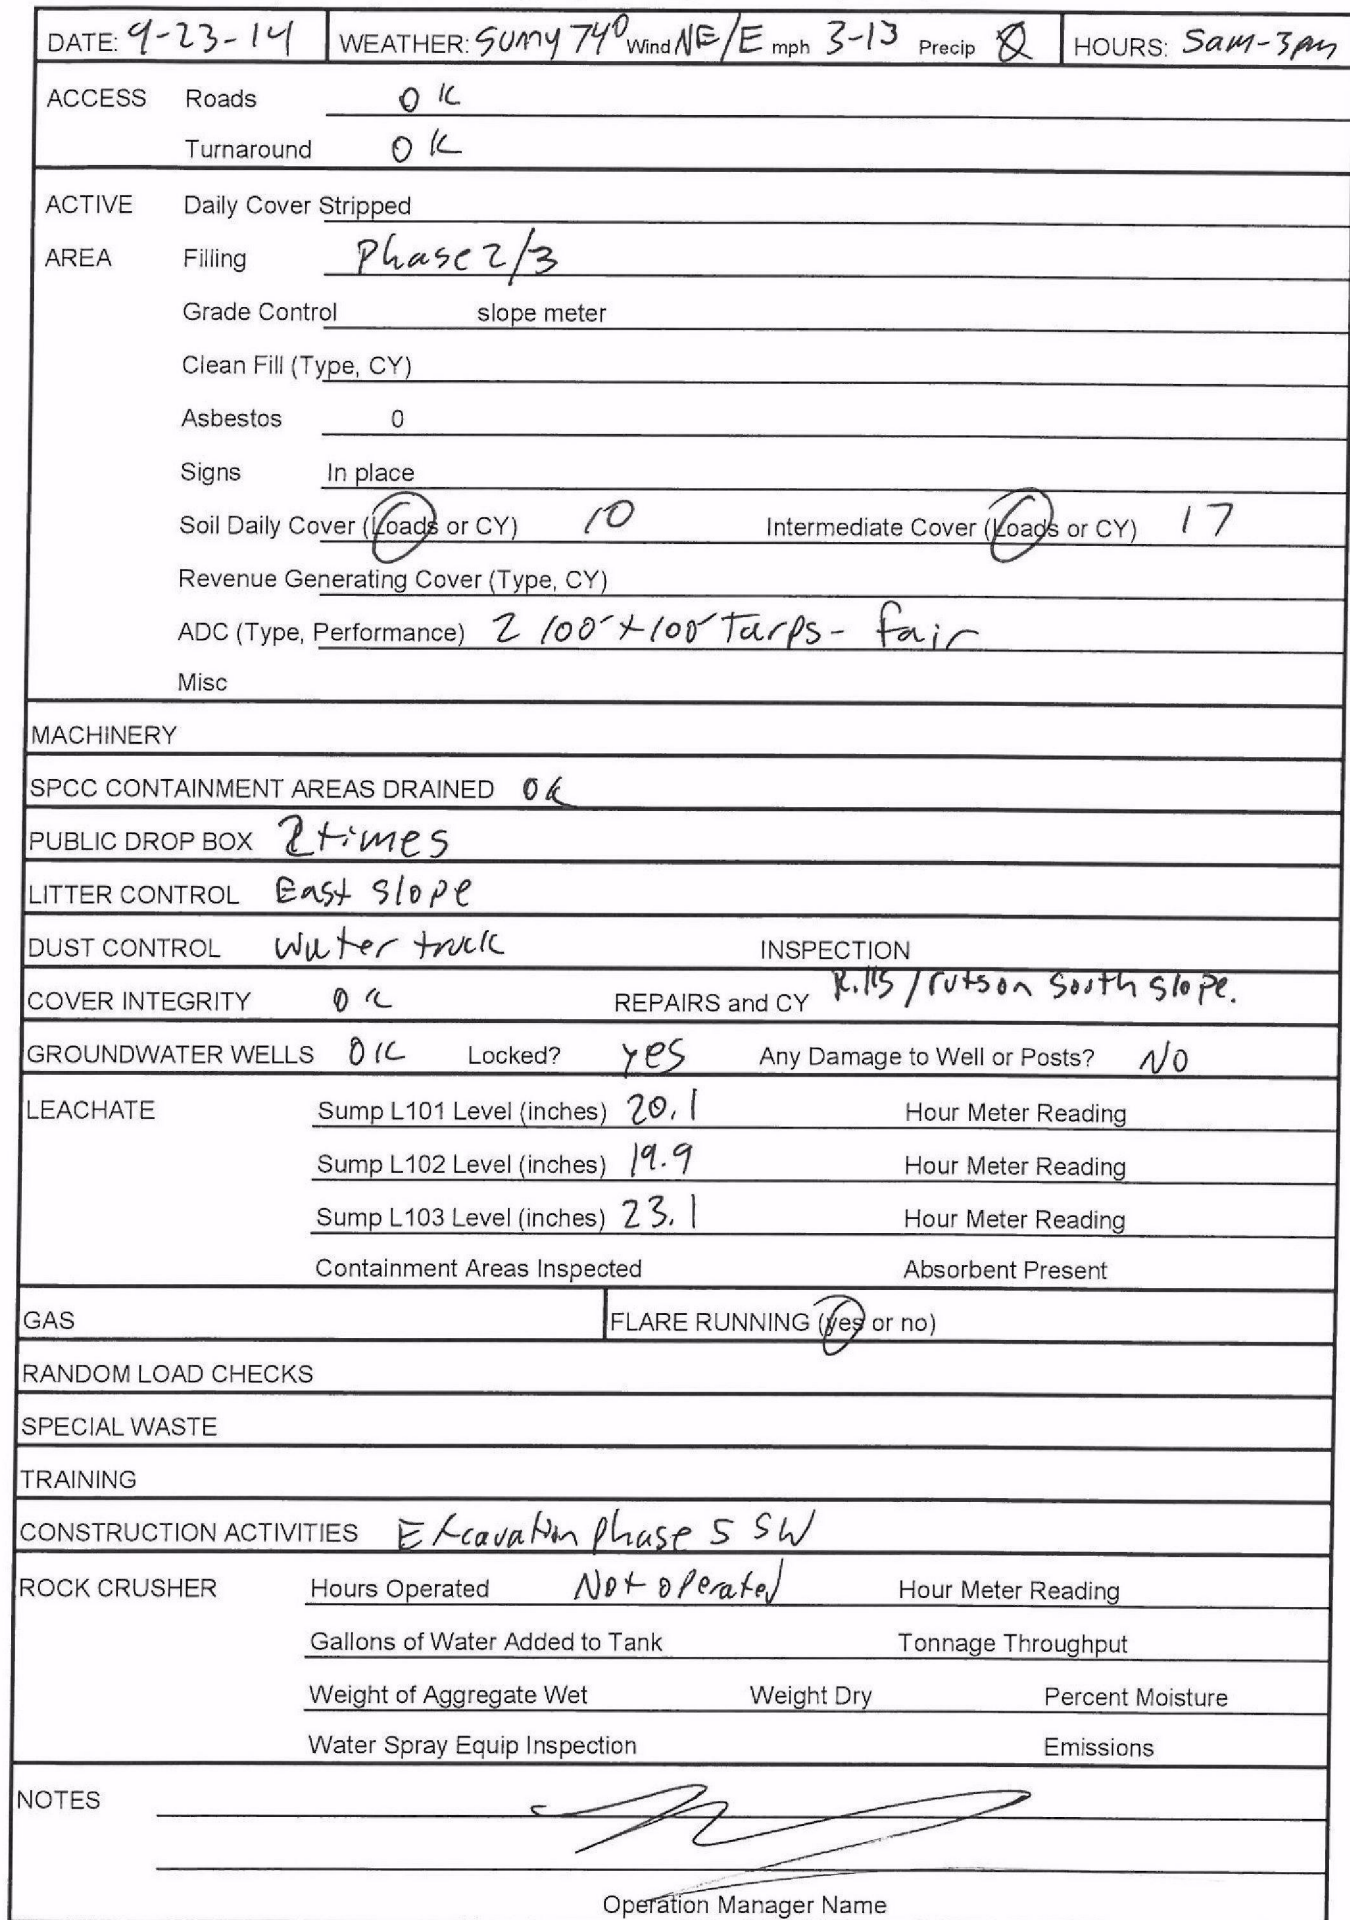 DATE: 9-23-14 WEATHER: Sunny 74° Wind NE/E mph 3-13 Precip Ø HOURS: 5am-3pm
ACCESS Roads OK
Turnaround OK
ACTIVE Daily Cover Stripped
AREA Filling Phase 2/3
Grade Control slope meter
Clean Fill (Type, CY)
Asbestos 0
Signs In place
Soil Daily Cover (Loads or CY) 10 Intermediate Cover (Loads or CY) 17
Revenue Generating Cover (Type, CY)
ADC (Type, Performance) 2 100'x100' Tarps - fair
Misc
MACHINERY
SPCC CONTAINMENT AREAS DRAINED OK
PUBLIC DROP BOX 2 times
LITTER CONTROL East slope
DUST CONTROL Water truck INSPECTION
COVER INTEGRITY OK REPAIRS and CY Rills/ruts on South slope.
GROUNDWATER WELLS OK Locked? yes Any Damage to Well or Posts? NO
LEACHATE Sump L101 Level (inches) 20.1 Hour Meter Reading
Sump L102 Level (inches) 19.9 Hour Meter Reading
Sump L103 Level (inches) 23.1 Hour Meter Reading
Containment Areas Inspected Absorbent Present
GAS FLARE RUNNING (yes or no)
RANDOM LOAD CHECKS
SPECIAL WASTE
TRAINING
CONSTRUCTION ACTIVITIES Excavation phase 5 SW
ROCK CRUSHER Hours Operated Not operated Hour Meter Reading
Gallons of Water Added to Tank Tonnage Throughput
Weight of Aggregate Wet Weight Dry Percent Moisture
Water Spray Equip Inspection Emissions
NOTES
Operation Manager Name